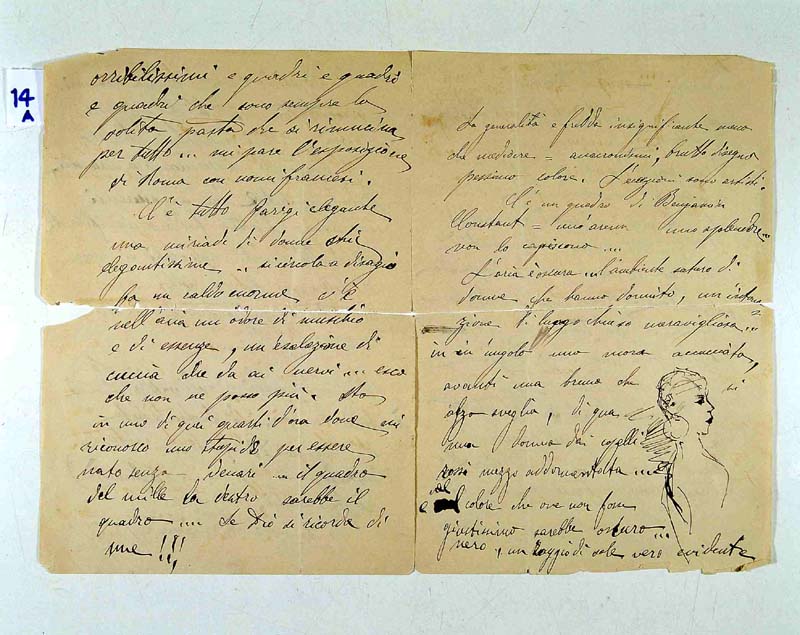 14
A
orribilissimi e quadri e quadri
e quadri che sono sempre la
solita pasta che si rimucina
per tutto... mi pare l'esposizione
di Roma con nomi francesi.
C'è tutto Parigi elegante
una miriade di donne chic
elegantissime .. si circola a disagio
fa un caldo enorme c'è
nell'aria un odore di muschio
e di essenze, un'esalazione di
che da ai nervi... esco
che non ne posso più. Sto
in uno di quei quarti d'ora dove mi
riconosco uno stupido per essere
nato senza denari ... il quadro
del mille la dentro sarebbe il
quadro .... Se Dio si ricorda di
me!!!
La generalità è fredda insignificante meno
che mediocre = anacronismi, brutto disegno
pessimo colore. L'eccezioni sono artisti.
C'è un quadro di Benjamin
Constant = uno splendore...
non lo capiscono...
L'aria è oscura... l'ambiente saturo di
donne che hanno dormito, un'
di luogo chiuso maravigliosa...
in un angolo una mora accucciata,
avanti una bruna che si
alza sveglia, di qua
una donna dai capelli
rossi mezzo addormentata ...
e colore che ove non fosse
giustissimo sarebbe oscuro...
nero, un raggio di sole vero evidente